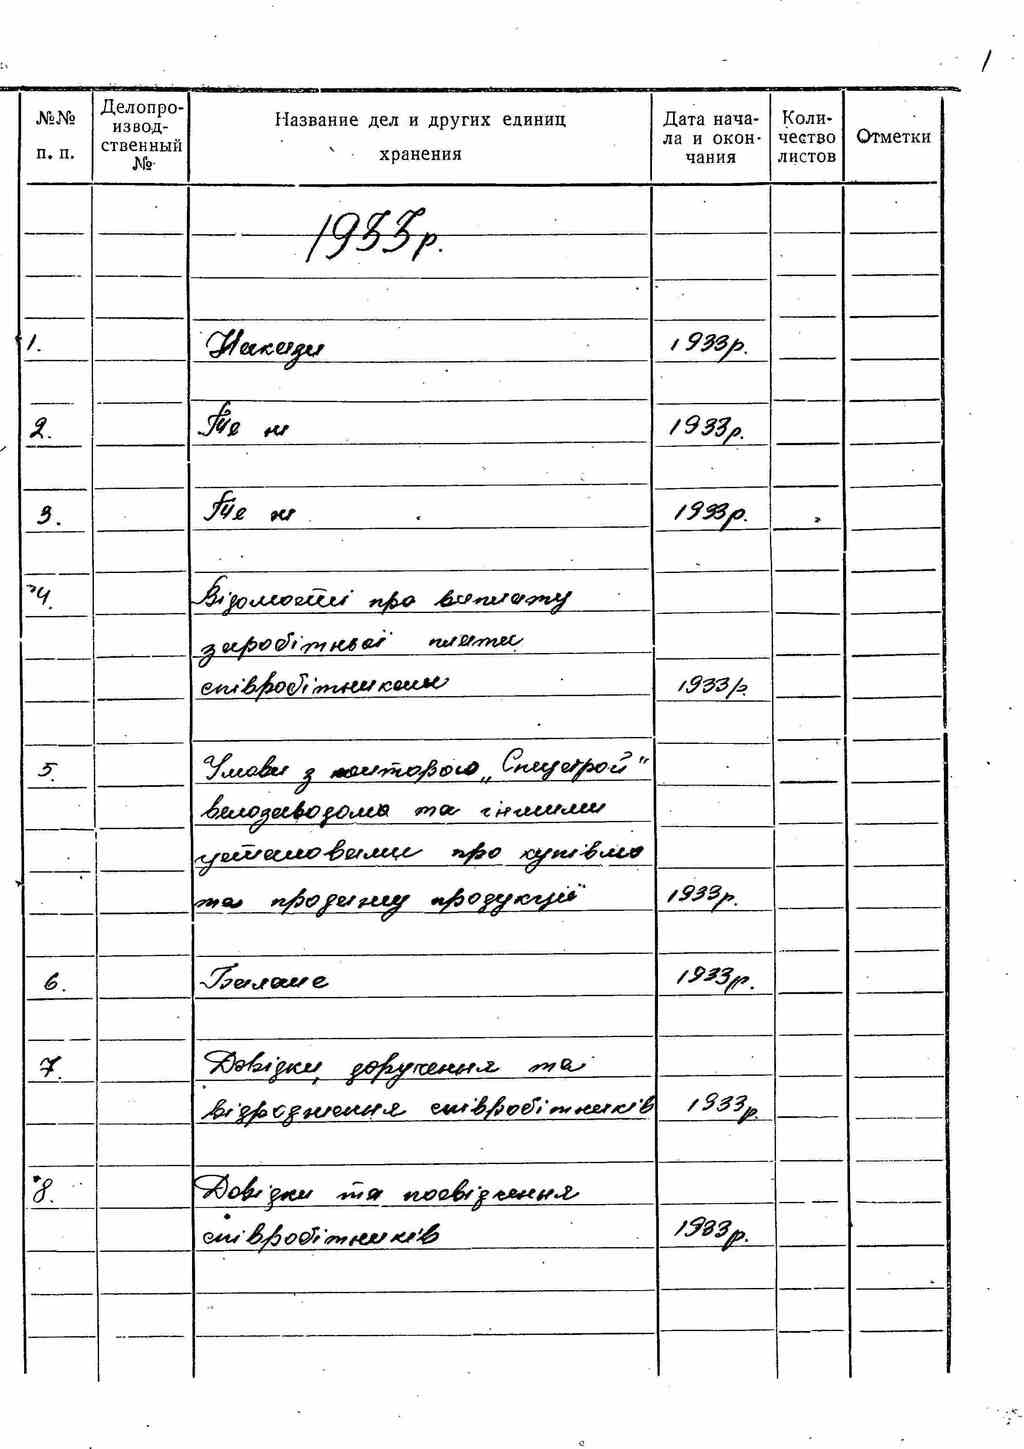 1
№№ п. п.
Делопро-
извод-
ственный
№
Название дел и других единиц
хранения
Дата нача-
ла и окон-
чания
Коли-
чество
листов
Отметки
1933р.
1. Накази 1933р.
2. Те ж 1933р.
3. Те ж 1933р.
4. Відомості про виплату
заробітньої плати
співробітникам 1933р.
5. Умови з конторою „Спецстрой"
велозаводом та іншими
установами про купівлю
та продажу продукції 1933р.
6. Баланс 1933р.
7. Довідки, доручення та
відрядження співробітників 1933р.
8. Довідки та посвідчення
співробітників 1933р.